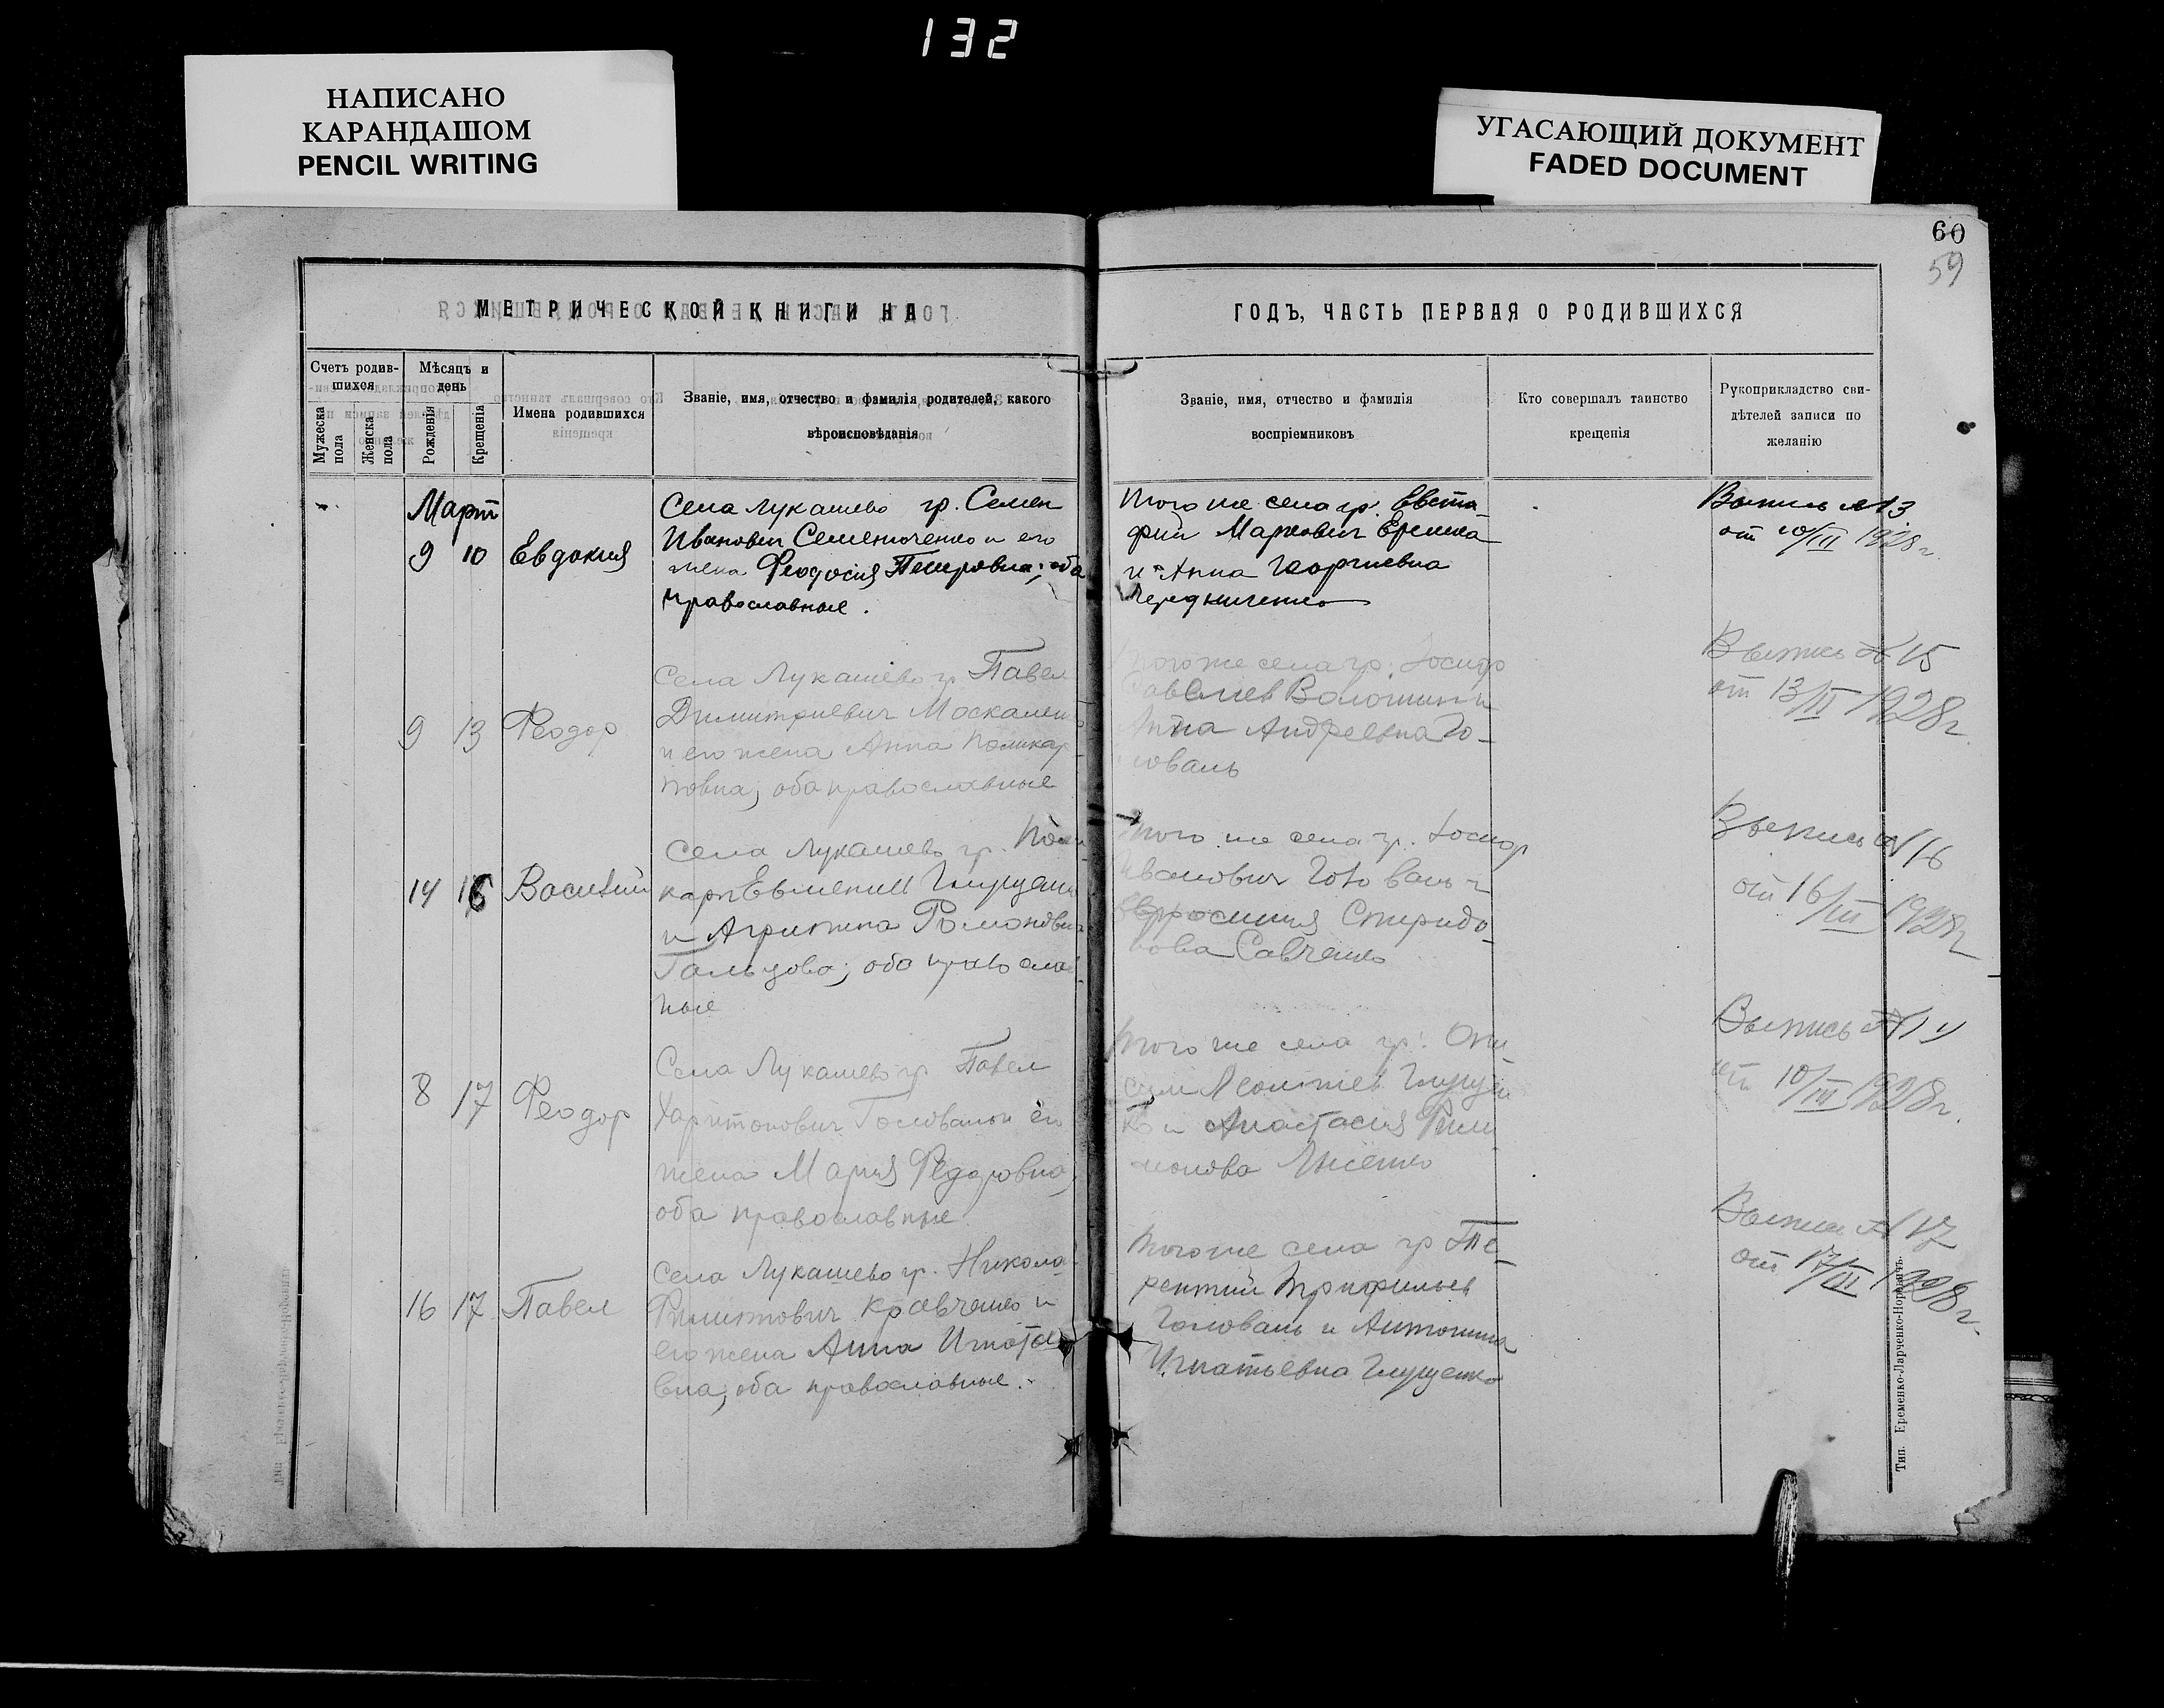 132
НАПИСАНО
КАРАНДАШОМ
PENCIL WRITING
УГАСАЮЩИЙ ДОКУМЕНТ
FADED DOCUMENT
60
59
МЕТРИЧЕСКОЙ КНИГИ НА
Счетъ родив-
шихся
Мѣсяцъ и
день
Мужеска
пола
Женска
пола
Рожденія
Крещенія
Имена родившихся
Званіе, имя, отчество и фамилія родителей, какого
вѣроисповѣданія
Март
9 10 Евдокия
Села Лукашево гр. Семен
Иванович Семенюченко и его
жена Феодосия Петровна; оба
православные.
9 13 Феодор
Села Лукашево гр Павел
Димитриевич Москаленко
и его жена Анна Поликар
повна; оба православные
14 16 Василий
Села Лукашево гр. Поли
карп
и Агрипина Романовна
оба православ
ные
8 17 Феодор
Села Лукашево гр. Павел
Харитонович Головань и его
жена Мария Федоровна,
оба православные.
16 17 Павел
Села Лукашево гр. Никола
Кравченко и
его жена Анна Игнатье
вна, оба православные.
ГОДЪ, ЧАСТЬ ПЕРВАЯ О РОДИВШИХСЯ
Званіе, имя, отчество и фамилія
воспріемниковъ
Кто совершалъ таинство
крещенія
Рукоприкладство сви-
дѣтелей записи по
желанію
Того же села гр. Евста
фий Маркович Ерешка
и Анна Георгиевна
Чередниченко
Выпись № 13
от 10/III 1928 г.
Того же села гр. Иосиф
Савелиев Волошин и
Анна Андреевна Го-
ловань
Выпись № 15
от 13/III 1928 г.
Того же села гр. Иосиф
Иванович Головань и
Евфросиния Спиридо-
нова Савченко
Выпись № 16
от 16/III 1928 г.
Того же села гр. Они-
сим Леонтиев Глущен
ко и Анастасия Фили
монова Лысенко
Выпись № 14
от 10/III 1928 г.
Того же села гр Те-
рентий Прокофильев
Головань и Антонина
Игнатьевна Глущенко
Выпись № 17
от 17/III 1928 г.
Тип. Еременко-Ларченко-Норманчъ.